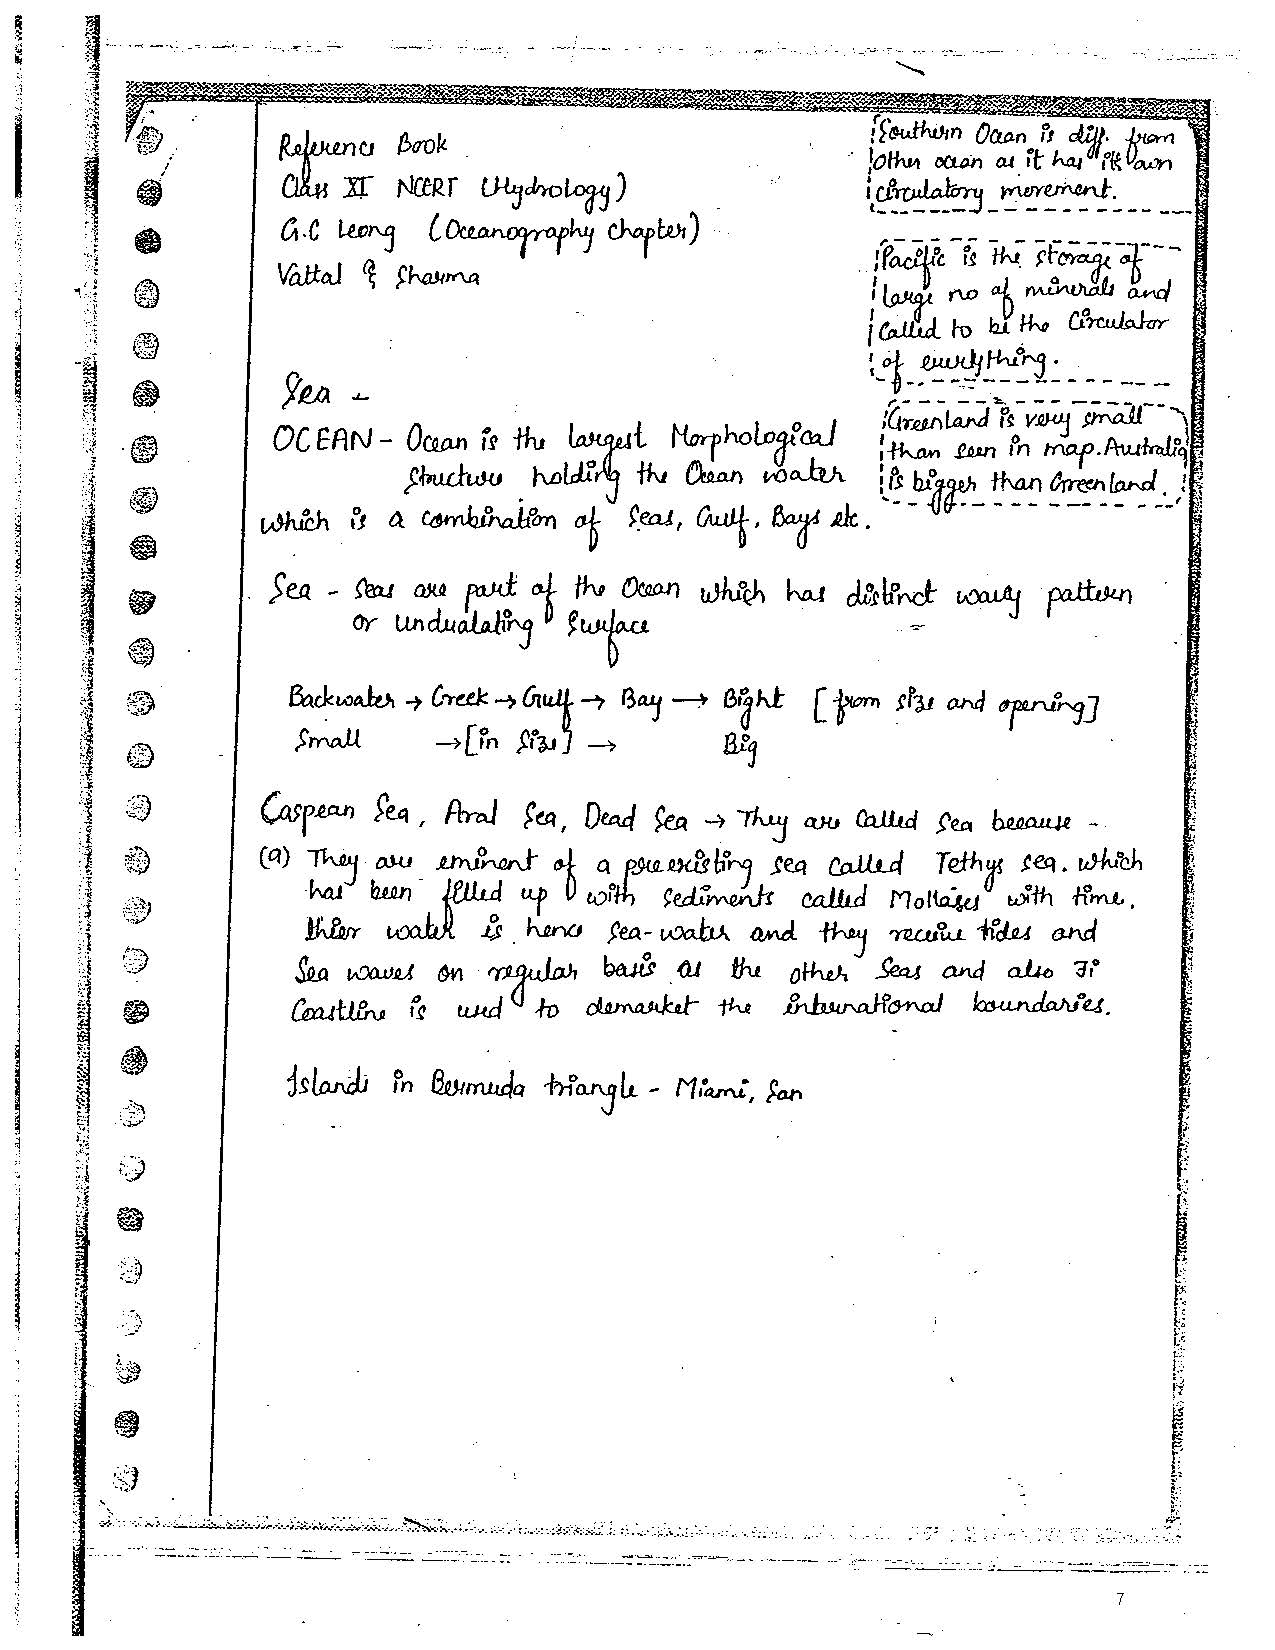 Reference Book
Class XI NCERT (Hydrology)
G.C Leong (Oceanography chapter)
Vattal & Sharma
Southern Ocean is diff. from
Other ocean as it has its own
circulatory movement.
Pacific is the storage of
large no of minerals and
Called to be the Circulator
of everything.
Greenland is very small
than seen in map. Australia
is bigger than Greenland.
Sea -
OCEAN - Ocean is the largest Morphological
Structure holding the Ocean water
which is a combination of Seas, Gulf, Bays etc.
Sea - Seas are part of the Ocean which has distinct wavy pattern
or undualating Surface
Backwater → Creek → Gulf → Bay → Bight [from size and opening]
Small → [in size] → Big
Caspean Sea, Aral Sea, Dead Sea → They are Called Sea because -
(a) They are eminent of a preexisting sea called Tethys sea. which
has been filled up with Sediments called Mollases with time.
thier water is hence Sea-water and they receive tides and
Sea waves on regular basis as the other Seas and also
Coastline is used to demarket the international boundaries.
Islands in Bermuda triangle - Miami, San
7